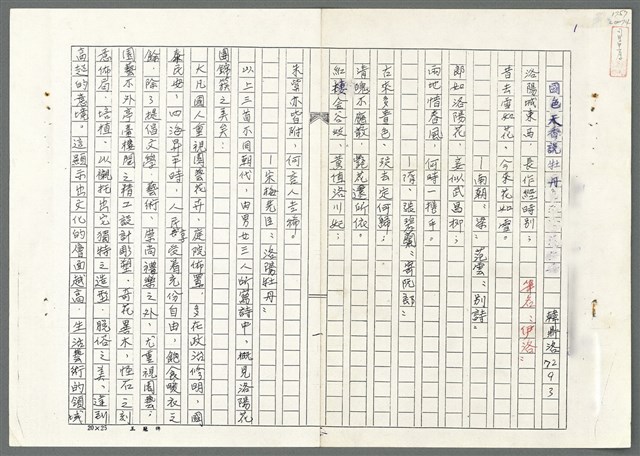 1
國色天香說牡丹
韓鼎洛7243
筆名:伊洛:
洛陽城東西,長作經時別:
昔去雪如花,今來花如雪。
—南朝:梁:范雲:別詩:
郎如洛陽花,妾似武昌柳:
兩地惜春風,何時一攜手。
—隋、張碧蘭:寄阮郎:
古來多昔色,歿去定何歸:
清魄不應散,艷花還所依。
紅棲金谷妓,黃值洛川妃:
朱紫亦皆附,何言人去稀。
—宋梅堯臣:洛陽牡丹:
以上三首不同朝代,由男女三人所寫詩中,概見洛陽花
團錦簇之美矣:
大凡國人重視園藝花卉,庭院佈置,多在政治修明,國
泰民安,四海昇平時,人民享受着充份自由,飽食暖衣之
餘,除了提倡文學、藝術,崇尚禮樂之外,尤重視園藝:
園藝不外亭臺樓閣之精工設計彫塑,奇花異木,怪石之刻
意佈局、培植,以襯托出它獨特之造型,脫俗之美、達到
高超的意境。這顯示出文化的層面越高,生活藝術的領域
20×25